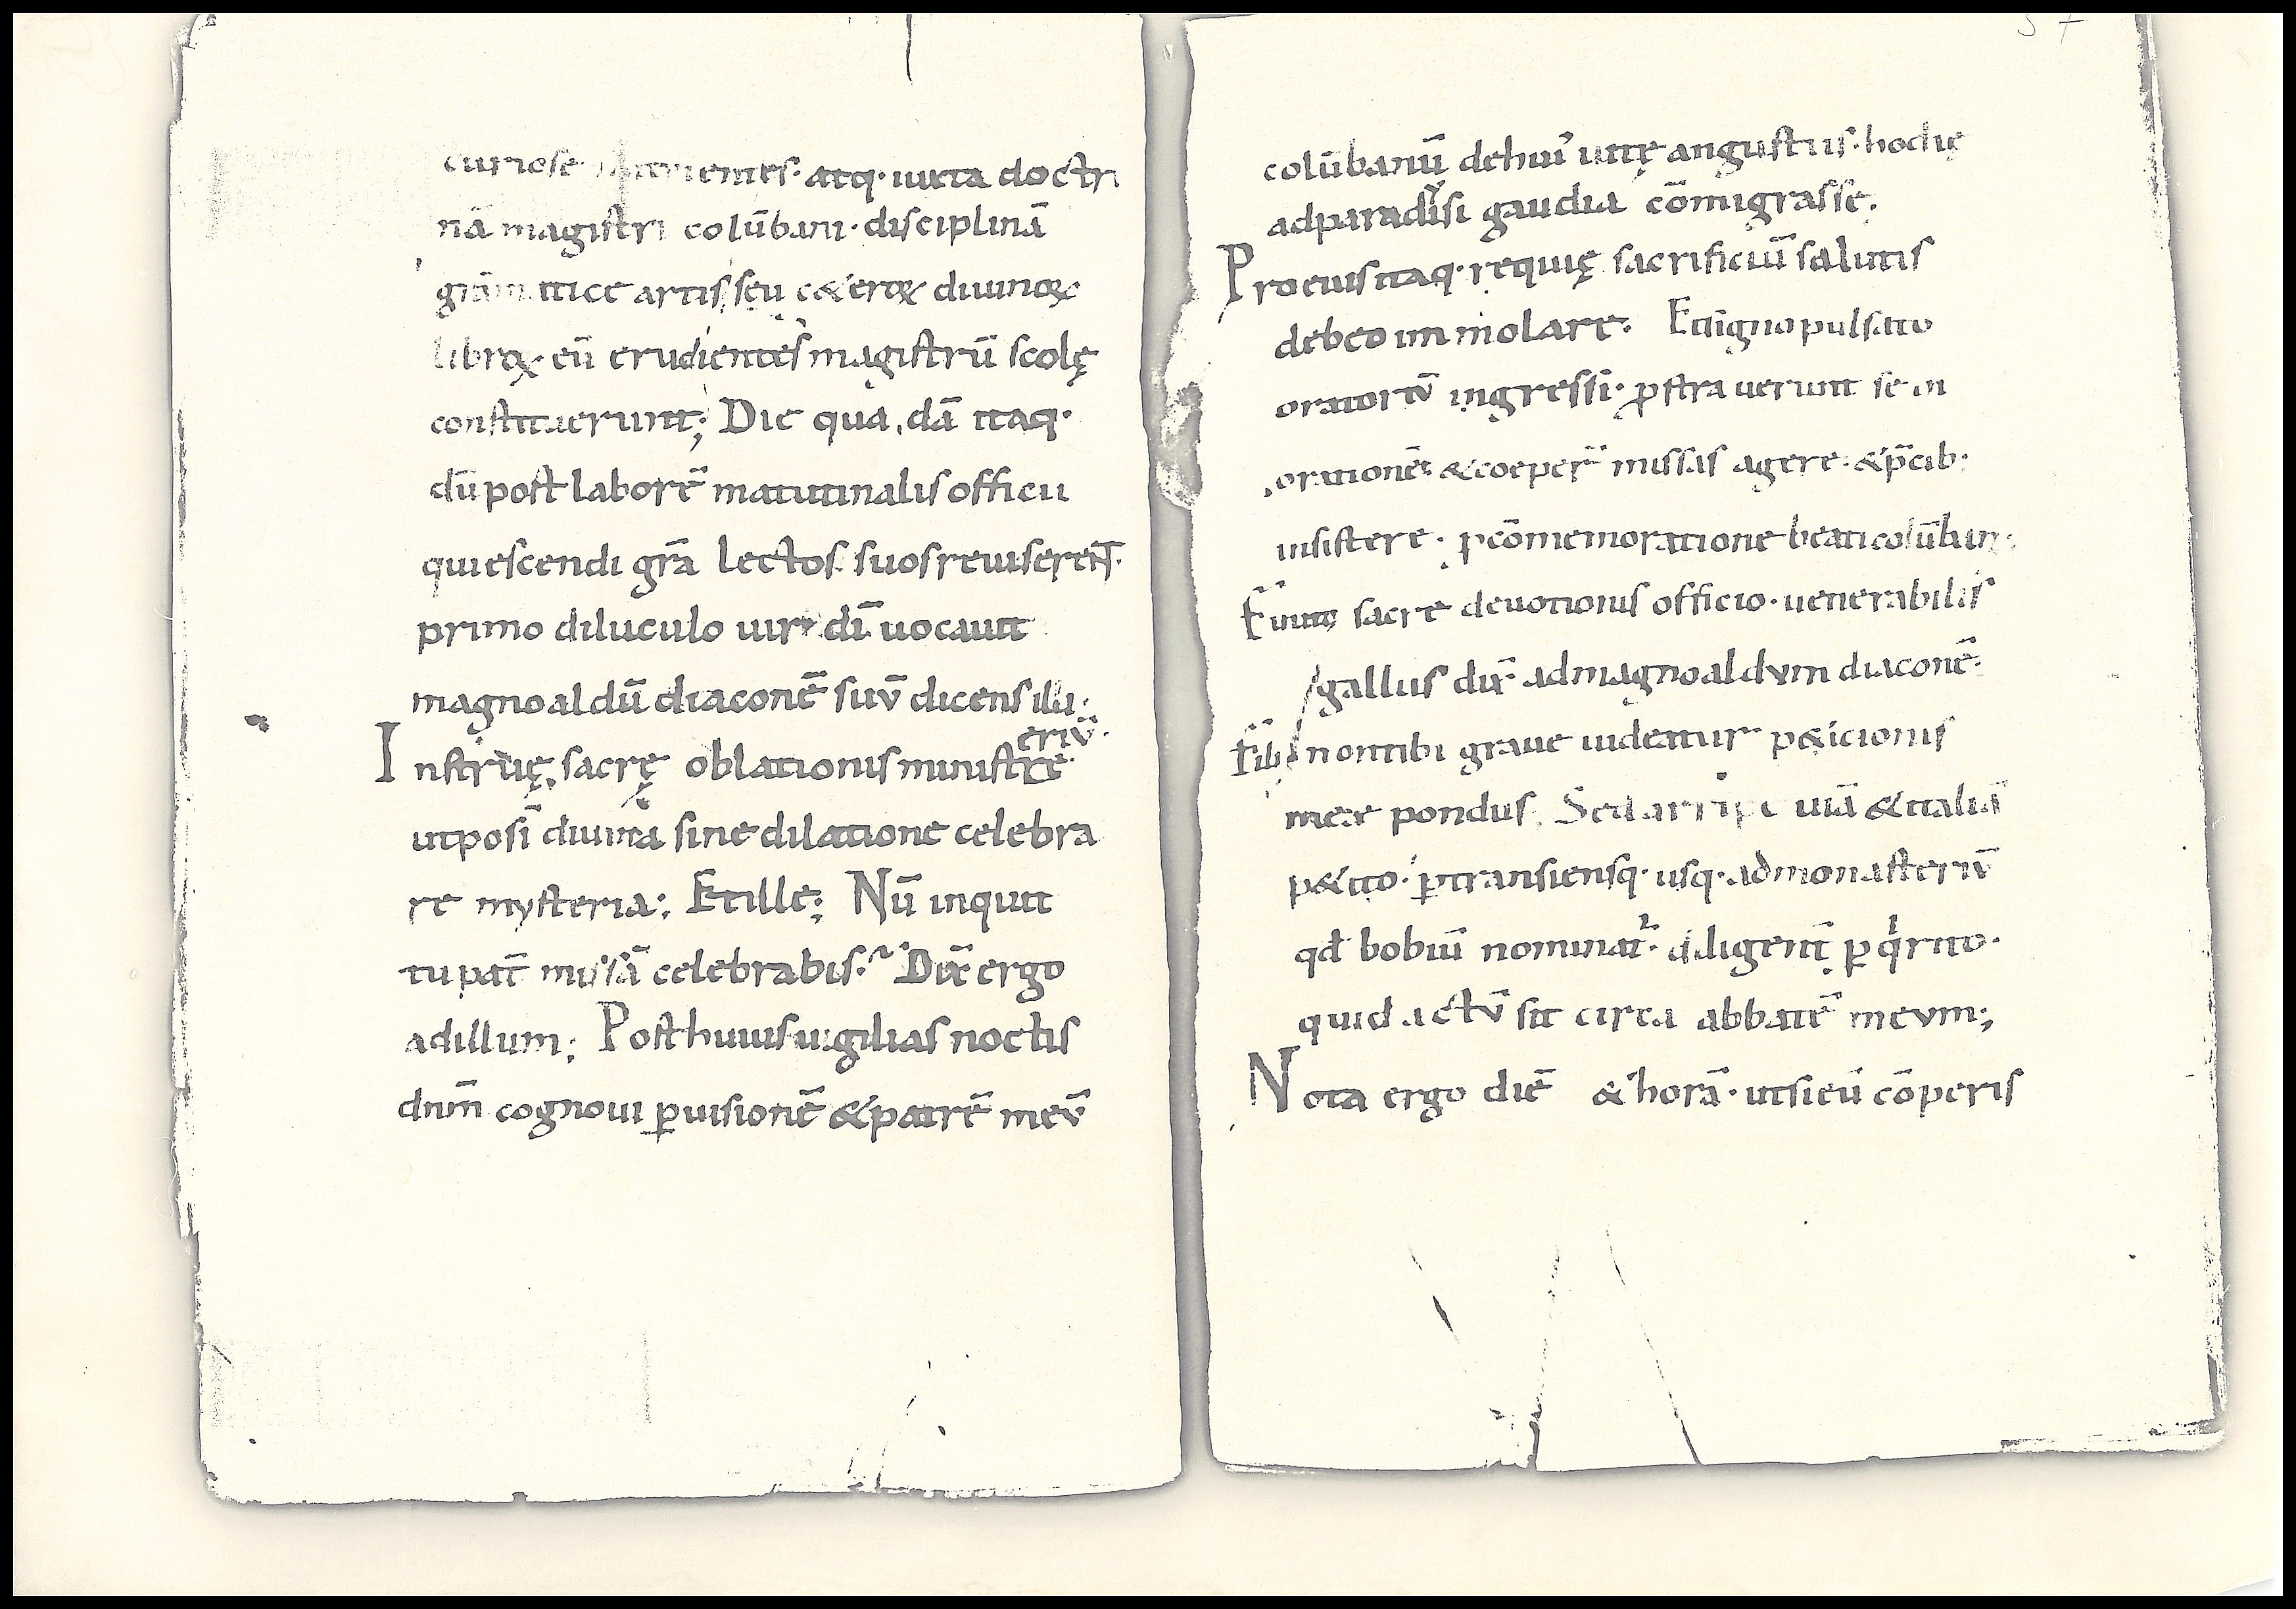 curiose nutrientes· atq· iuxta doctri
nā magistri colūbani· disciplinā
grāmatice artis, seu c&eroꝝ diuinoꝝ
libroꝝ· eū erudientes magistrū scolę
constituerunt; Die quadā itaq·
dū post laborē matutinalis officii
quiescendi grā lectos suos reuiserent̄·
primo diluculo uir dī uocauit
magnoaldū diaconē suū dicens illi·
eriū·
Instruę sacrę oblationis ministre
ut posī diuina sine dilatione celebra
re mysteria; Et ille; Nū inquit
tu pat̄ missā celebrabis· Dix̄ ergo
ad illum; Post huius uigilias noctis
dnm̄ cognoui ꝑ uisionē & patrē meū
57
colūbanū de hui' uitę angustiis· hodię
ad paradisi gaudia cōmigrasse.
Pro eius itaq· requię sacrificiū salutis
debeo immolare. Et signo pulsato
oratoriū ingressi· ꝓstrauerunt se in
orationē· & coeper̄ missas agere· & p̄cib·
insistere· p cōmemoratione beati colūbani·
Finito sacre deuotionis officio· uenerabilis
gallus dix̄ ad magnoaldum diaconē·
Fili non tibi graue uideatur p&icionis
meae pondus. Sed arripe uiā & italiā
p&ito· ꝑtransiensq· usq· ad monasteriū
qd̄ bobiū nominat̄· diligent̄ ꝑqirito·
quid actū sit circa abbatē meum;
Nota ergo diē & horā· ut si eū cōperis